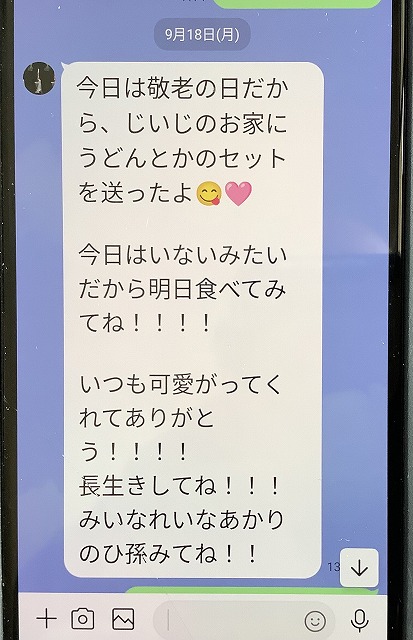 9月18日(月)
今日は敬老の日だか
ら、じいじのお家に
うどんとかのセット
を送ったよ😋🩷
今日はいないみたい
だから明日食べてみ
てね！！！！
いつも可愛がってく
れてありがと
う！！！！
長生きしてね！！！
みいなれいなあかり
のひ孫みてね！！